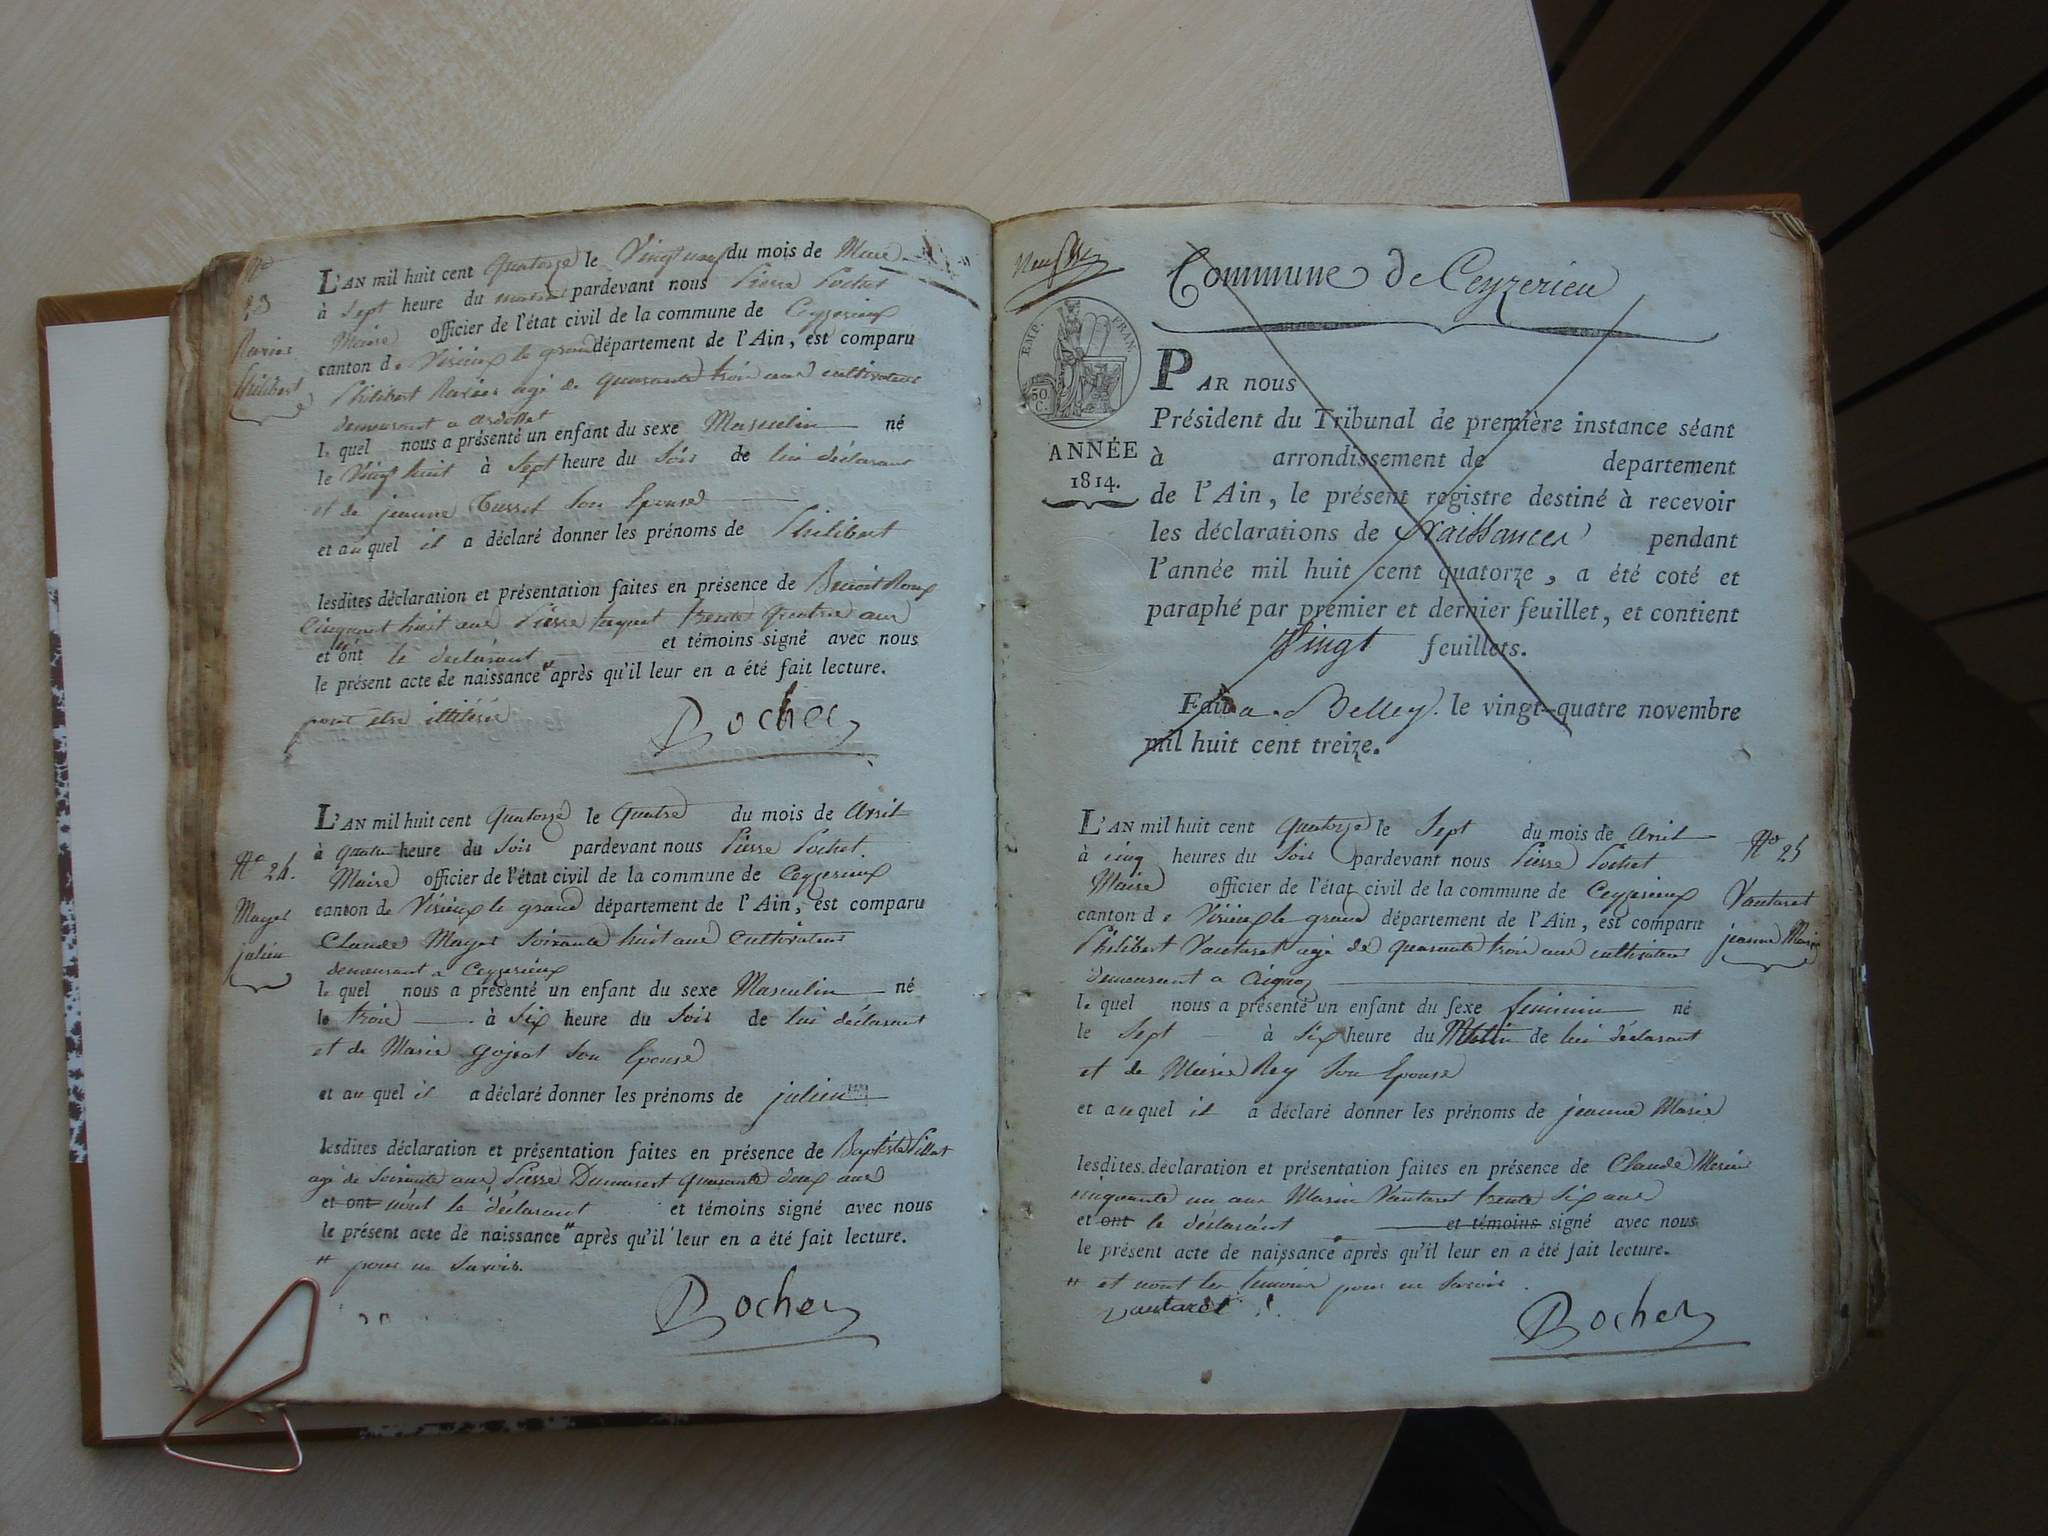 N.º
23
Philibert
L'AN mil huit cent quatorze le vingt neuf du mois de Mars
à sept heure du matin pardevant nous Pierre Pochet
Maire officier de l'état civil de la commune de Ceyzerieux
canton de Virieux le grand département de l'Ain, est comparu
Philibert agé de quarante trois ans cultivateur
demeurant a
le quel nous a présenté un enfant du sexe Masculin né
le vingt huit à sept heure du soir de lui déclarant
et de jeanne son Epouse
et au quel il a déclaré donner les prénoms de Philibert
lesdites déclaration et présentation faites en présence de Benoit Roux
cinquant huit ans Pierre trente quatre ans
et ont le déclarant et témoins signé avec nous
le présent acte de naissance # après qu'il leur en a été fait lecture.
pour etre illitéré
Pochet
N.º 24.
Mayet
julien
L'AN mil huit cent quatorze le quatre du mois de avril
à quatre heure du soir pardevant nous Pierre Pochet
Maire officier de l'état civil de la commune de Ceyzerieux
canton de Virieux le grand département de l'Ain, est comparu
Claude Mayet soixante huit ans cultivateur
demeurant a Ceyzerieux
le quel nous a présenté un enfant du sexe Masculin né
le trois à six heure du soir de lui déclarant
et de Marie gojrat son Epouse
et au quel il a déclaré donner les prénoms de julien
lesdites déclaration et présentation faites en présence de Baptiste Pillat
agé de soixante ans Pierre quarante deux ans
et ont n'ont le déclarant et témoins signé avec nous
le présent acte de naissance # après qu'il leur en a été fait lecture.
# pour ne savoir.
Pochet
EMP. FRAN.
50 C.
ANNÉE
1814.
Commune de Ceyzerieu
PAR nous
Président du Tribunal de première instance séant
à arrondissement de departement
de l'Ain, le présent registre destiné à recevoir
les déclarations de Naissances pendant
l'année mil huit cent quatorze, a été coté et
paraphé par premier et dernier feuillet, et contient
Vingt feuillets.
Fait a Belley. le vingt-quatre novembre
mil huit cent treize.
N.º 25
Vautaret
jeanne Marie
L'AN mil huit cent quatorze le sept du mois de avril
à cinq heures du soir pardevant nous Pierre Pochet
Maire officier de l'état civil de la commune de Ceyzerieux
canton de Virieux le grand département de l'Ain, est comparu
Philibert Vautaret agé de quarante trois ans cultivateur
demeurant a Aignoz
le quel nous a présenté un enfant du sexe feminin né
le sept à six heure du Matin de lui déclarant
et de Marie Rey son Epouse
et au quel il a déclaré donner les prénoms de jeanne Marie
lesdites déclaration et présentation faites en présence de Claude
cinquante un ans Marin Vautaret trente six ans
et ont le déclarant et témoins signé avec nous
le présent acte de naissance # après qu'il leur en a été fait lecture.
# et nont les temoins pour ne savoir.
vautaret
Pochet